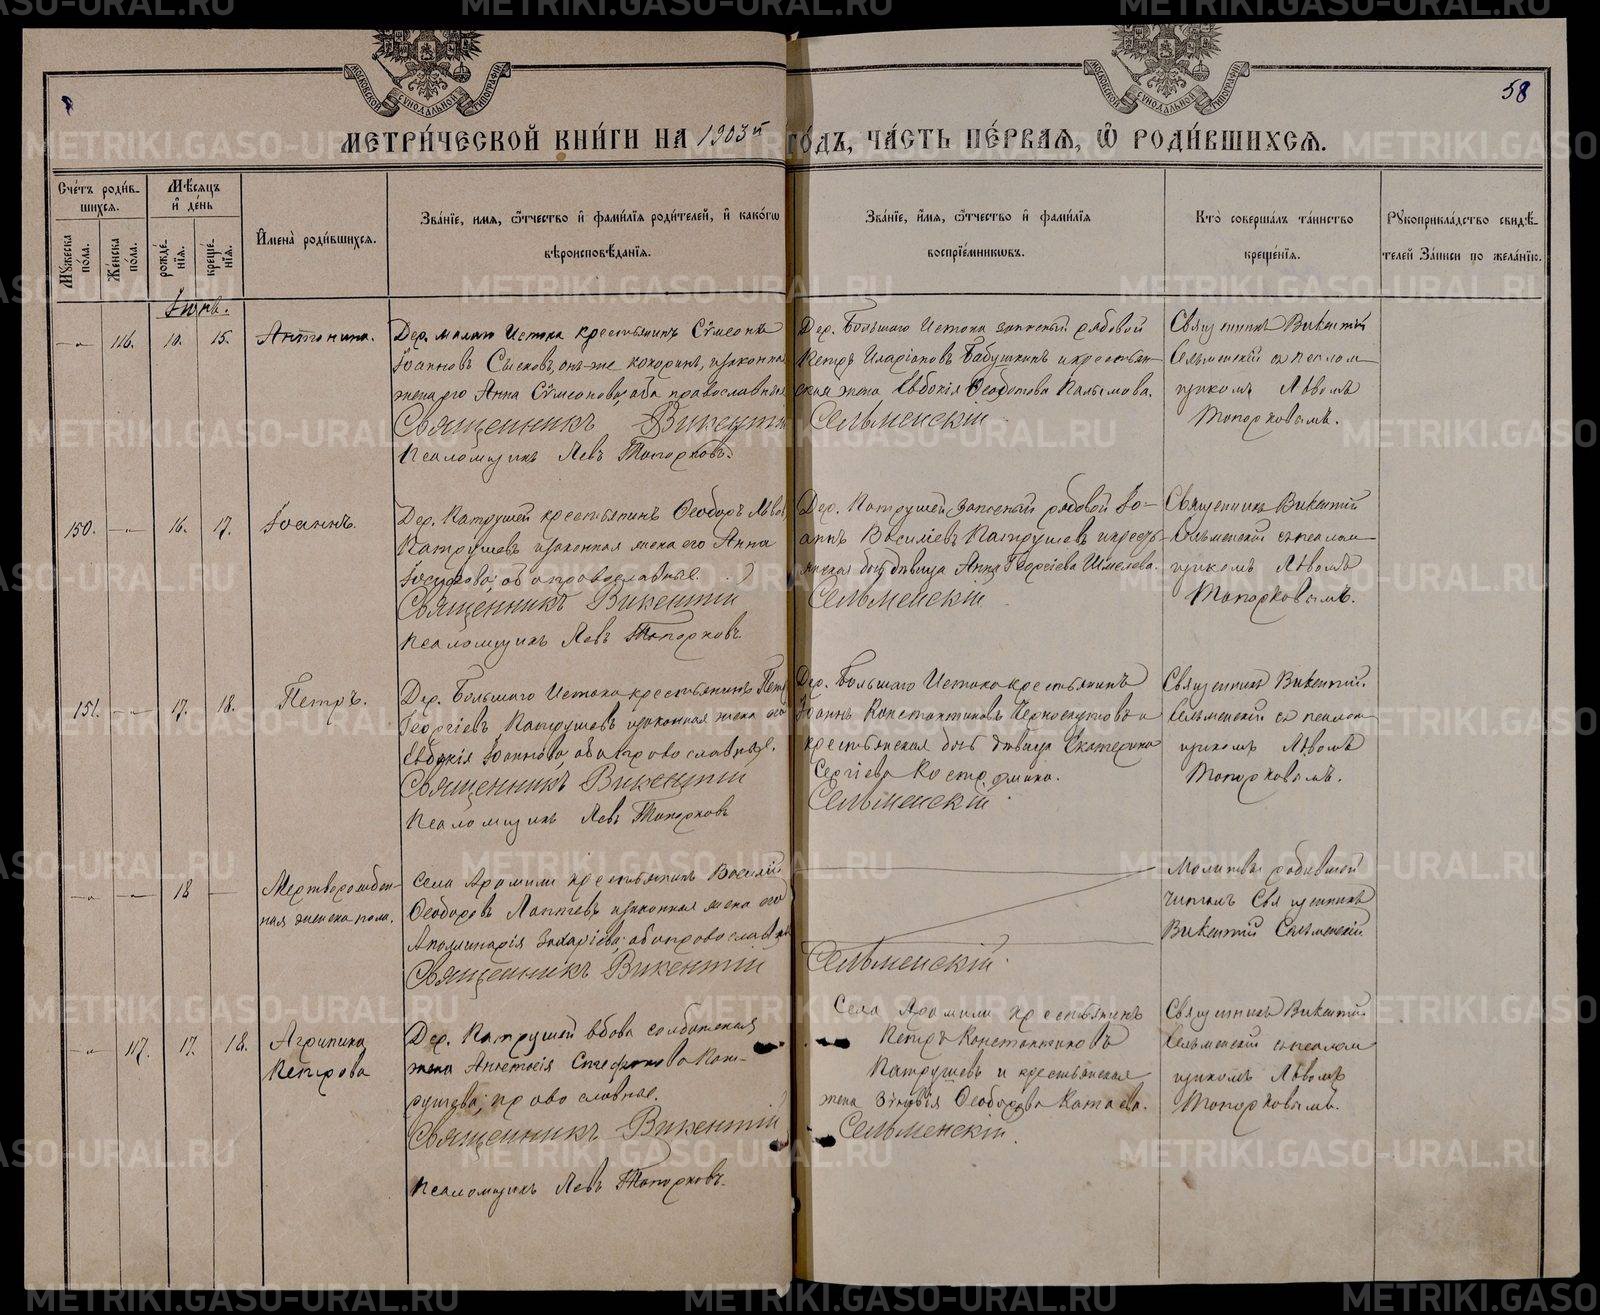 58
МЕТРИ́ЧЕСКОЙ КНИ́ГИ НА 1903й ГО́ДЪ, ЧА́СТЬ ПЕ́РВАѦ, Ѡ҆ РОДИ́ВШИХСѦ.
Сче́тъ роди́вшихсѧ.
Мꙋ́жеска по́ла.
Же́нска по́ла.
Мѣ́сѧцъ и҆ де́нь
рожде́нїѧ.
креще́нїѧ.
И҆мена̀ роди́вшихсѧ.
Зва́нїе, имѧ, ѻ҆́тчество и҆ фами́лїѧ роди́телей, и҆ како́гѡ
вѣроисповѣ́данїѧ.
Зва́нїе, и҆́мѧ, ѻ҆́тчество и҆ фами́лїѧ
воспрїе́мникѡвъ.
Кто̀ соверша́лъ та́инство
креще́нїѧ.
Рꙋкоприкла́дство свидѣ́телей за́писи по жела́нїю.
Іюнь.
—„—
116.
10.
15.
Антонина.
Дер. малаго Истока крестьянинъ Сѵмеонъ
Іоанновъ онъ-же Кокоринъ, и законная
жена его Анна Сѵмеонова, оба православные
Священникъ Викентій
Псаломщикъ Левъ Топорковъ.
Дер. Большаго Истока запасный рядовой
Петръ Иларіоновъ Бабушкинъ и крестьян-
ская жена Евдокія Ѳеодотова
Сельменскій
Священникъ Викентій
Сельменскій съ псалом-
щикомъ Львомъ
Топорковымъ.
150.
—„—
16.
17.
Іоаннъ.
Дер. Патрушей крестьянинъ Ѳеодоръ Львовъ
Патрушевъ и законная жена его Анна
Іосифова, оба православные.
Священникъ Викентій
Псаломщикъ Левъ Топорковъ
Дер. Патрушей запасный рядовой Іо-
аннъ Василіевъ Патрушевъ и кресть-
янская дочь дѣвица Анна Георгіева Шмелева.
Сельменскій
Священникъ Викентій
Сельменскій съ псалом-
щикомъ Львомъ
Топорковымъ.
151.
—„—
17.
18.
Петръ.
Дер. Большаго Истока крестьянинъ Петръ
Георгіевъ Патрушевъ и законная жена его
Евдокія Іоаннова, оба православные.
Священникъ Викентій
Псаломщикъ Левъ Топорковъ
Дер. Большаго Истока крестьянинъ
Іоаннъ Константиновъ Черноскутовъ и
крестьянская дочь дѣвица Екатерина
Сергіева Костромина.
Сельменскій
Священникъ Викентій
Сельменскій съ псалом-
щикомъ Львомъ
Топорковымъ.
—„—
—„—
18
—
Мертворожден-
ная женска пола.
Села Арамили крестьянинъ Василій
Ѳеодоровъ Лаптевъ и законная жена его
Аполлинарія Захаріева, оба православные
Священникъ Викентій
Сельменскій
Молитвы родившей
читалъ Священникъ
Викентій Сельменскій
—„—
117.
17.
18.
Агрипина
Петрова
Дер. Патрушей вдова солдатская
жена Анастасія Стефанова Пат-
рушева, православные.
Священникъ Викентій
Псаломщикъ Левъ Топорковъ.
Села Арамили крестьянинъ
Петръ Константиновъ
Патрушевъ и крестьянская
жена Зиновія Ѳеодорова Катаева.
Сельменскій
Священникъ Викентій
Сельменскій съ псалом
щикомъ Львомъ
Топорковымъ.
METRIKI.GASO-URAL.RU